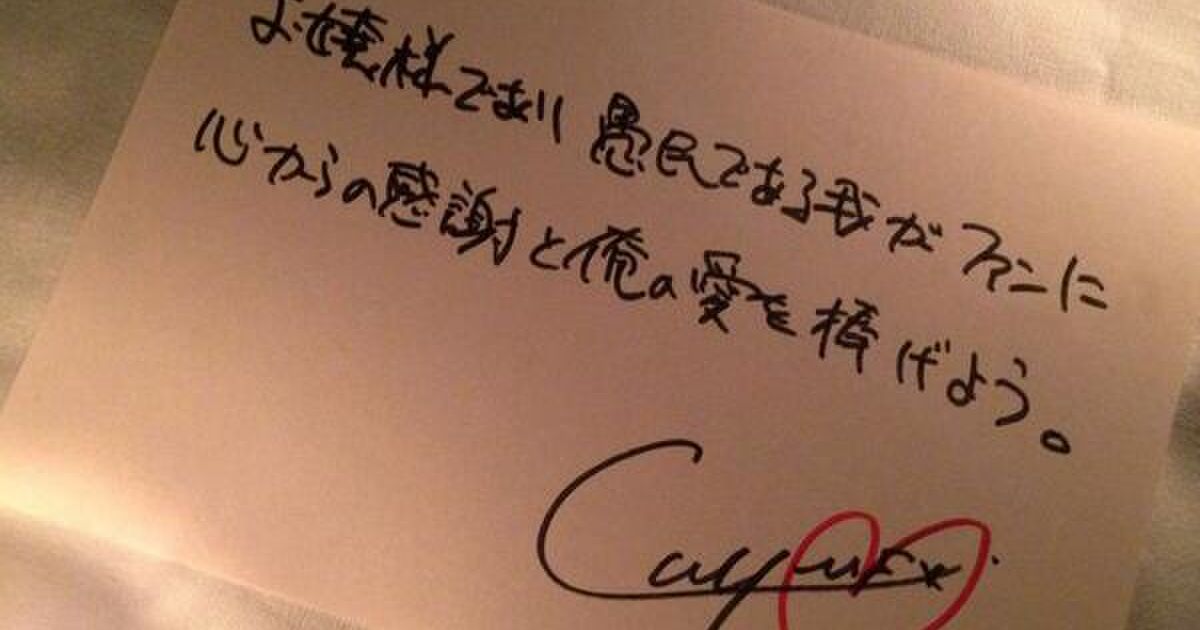 お嬢様であり愚民である我がファンに
心からの感謝と俺の愛を捧げよう。